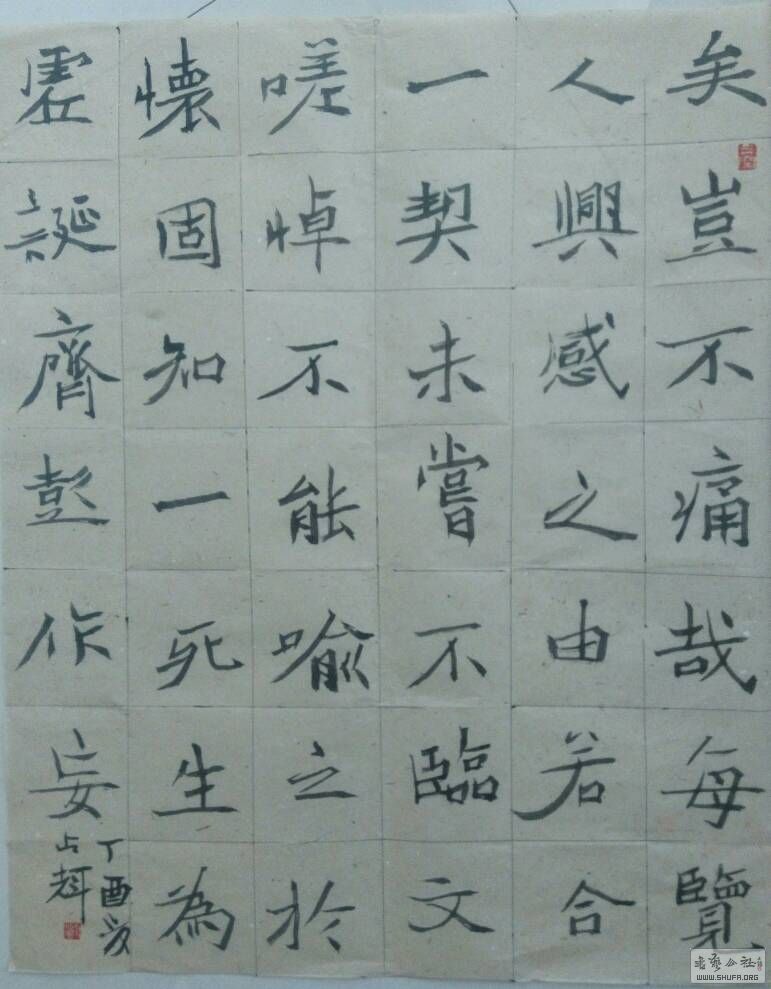 矣豈不痛哉每覽
人興感之由若合
一契未嘗不臨文
嗟悼不能喻之於
懷固知一死生為
虛誕齊彭作妄
丁酉
占輝
书艺公社
WWW.SHUFA.ORG